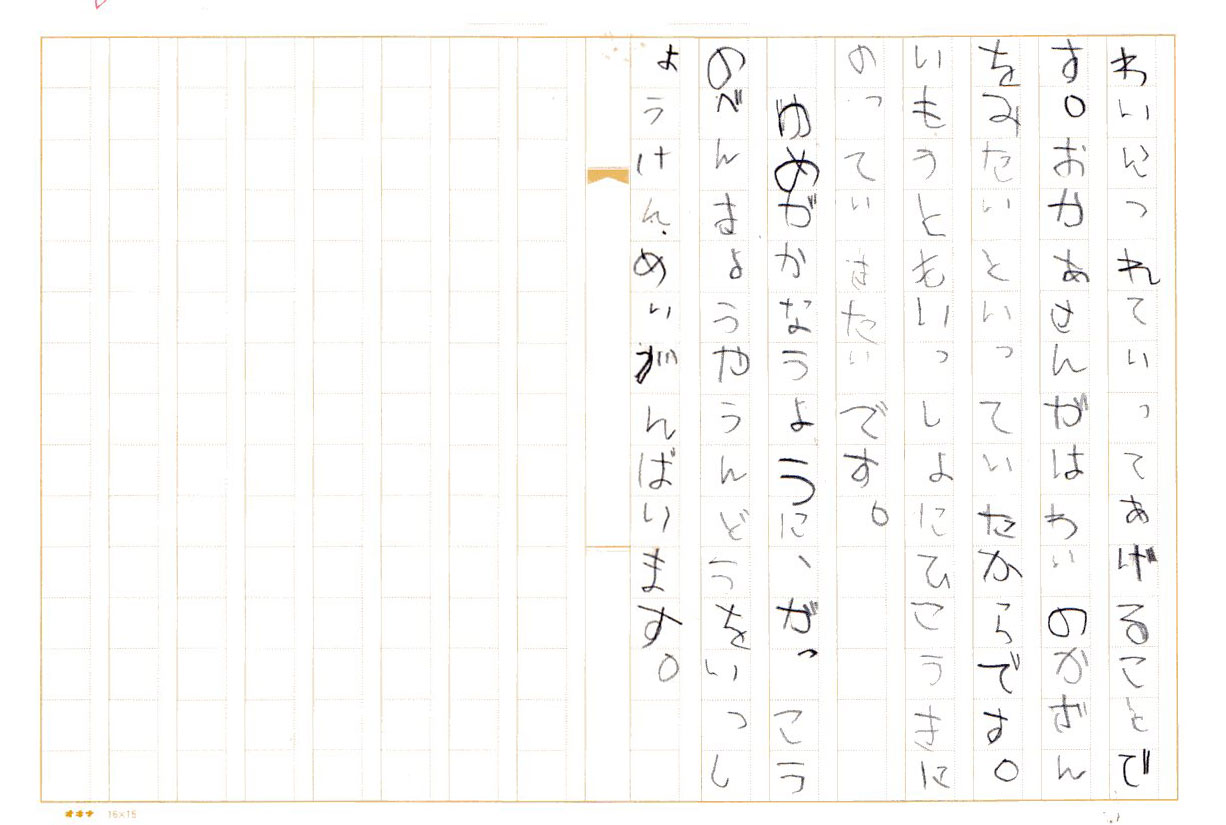 わいにつれていってあげることで
す。おかあさんがはわいのかざん
をみたいといっていたからです。
いもうともいっしょにひこうきに
のっていきたいです。
ゆめがかなうように、がっこう
のべんきょうやうんどうをいっし
ょうけんめいがんばります。
オキナ 16×15